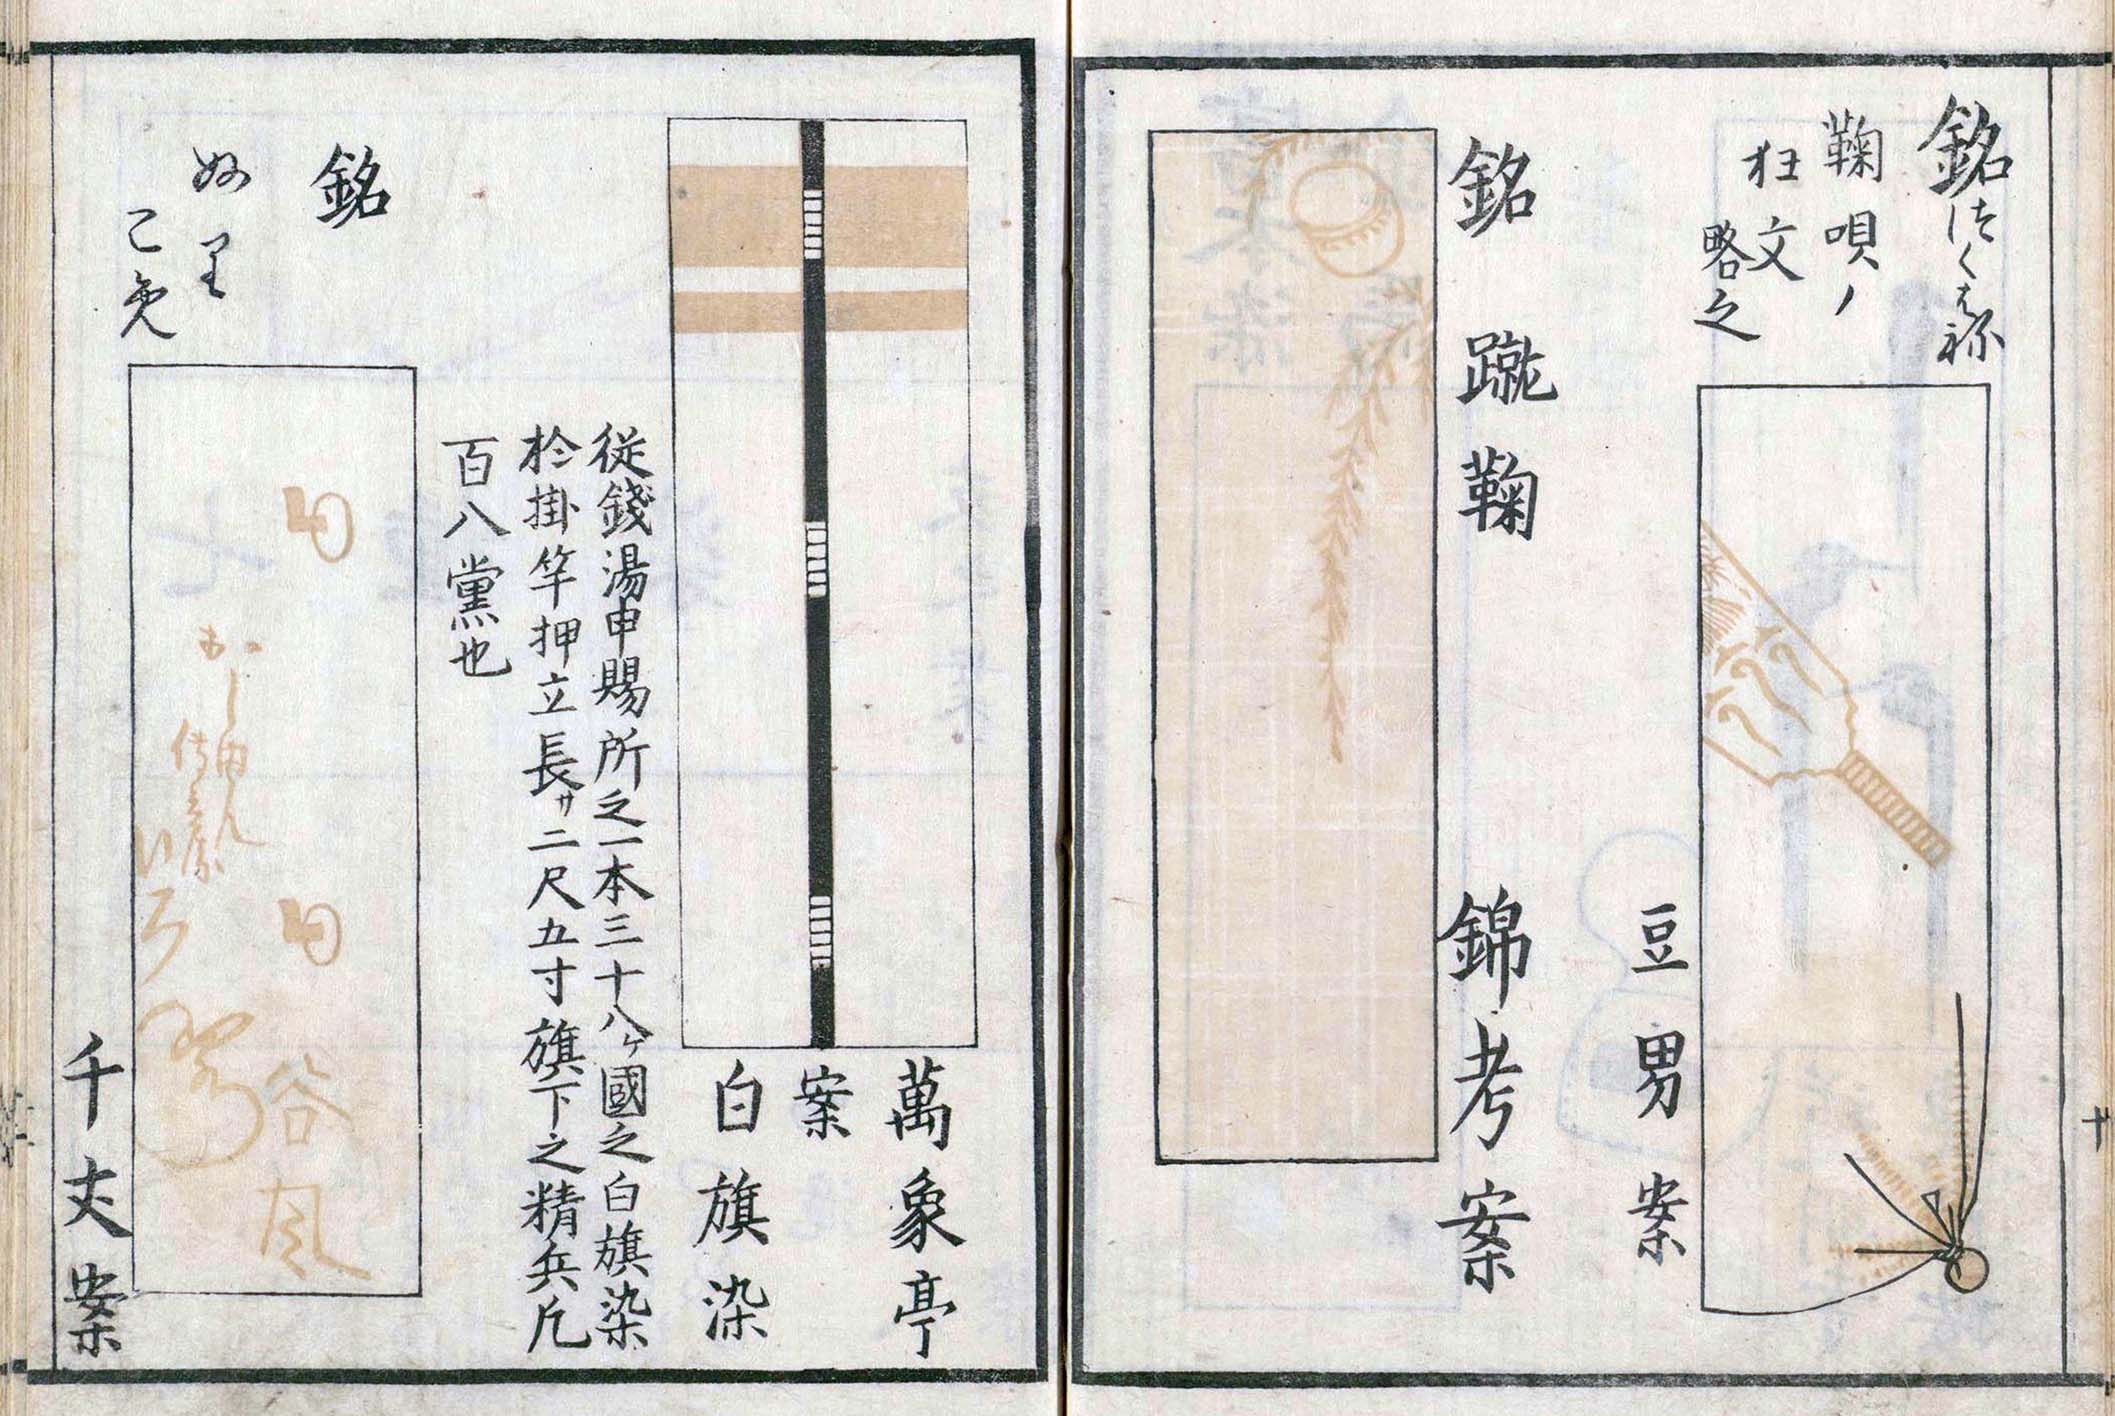 銘 つくはね
鞠唄ノ
狂文
略之
豆男案
十
銘 蹴鞠
錦考案
萬象亭
案
白旗染
従錢湯申賜所之一本三十八ヶ國之白旗染
於掛竿押立長サ二尺五寸旗下之精兵凡
百八黨也
銘
ぬり
谷風
千丈案